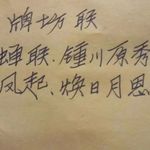 牌坊联
蝉联.锺川原秀
风起、焕日月恩